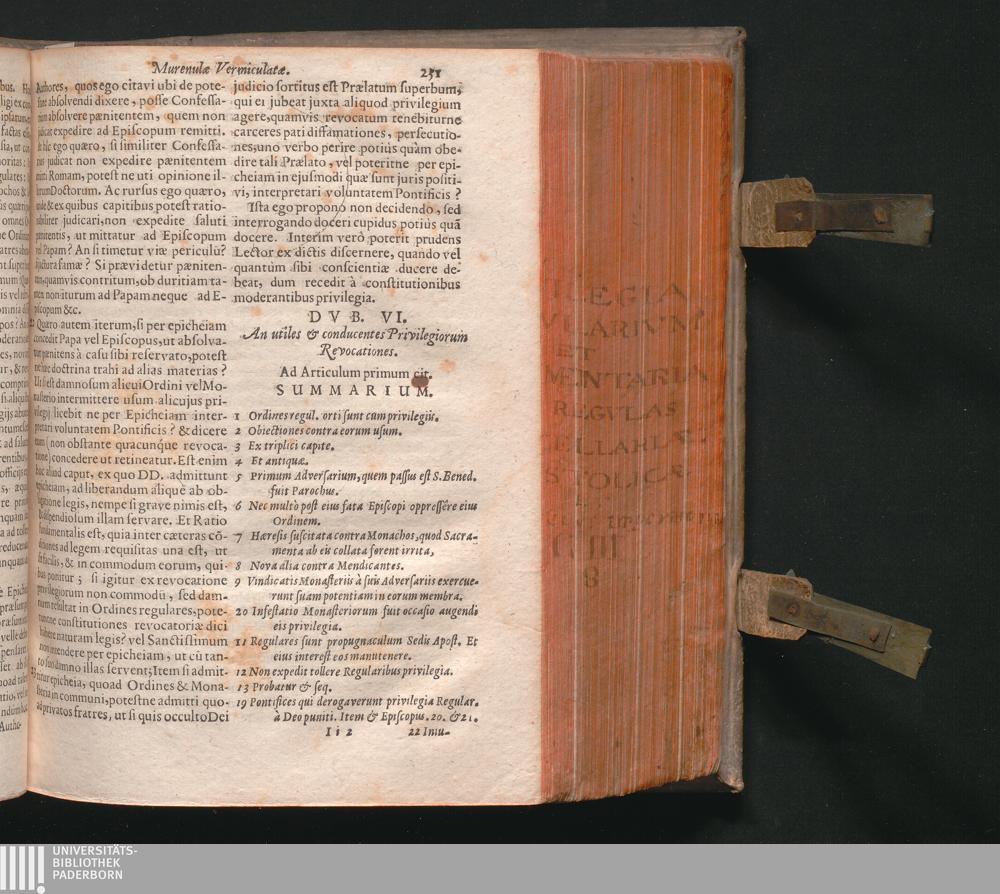 Murenulæ Vermiculatæ.
251
Authores, quos ego citavi ubi de pote-
state absolvendi dixere, posse Confessa-
rium absolvere pænitentem, quem non
judicat expedire ad Episcopum remitti.
hic ego quæro, si similiter Confessa-
rius judicat non expedire pænitentem
mitti Romam, potest ne uti opinione il-
lorum Doctorum. Ac rursus ego quæro,
unde & ex quibus capitibus potest ratio-
nabiliter judicari, non expedite saluti
pænitentis, ut mittatur ad Episcopum
vel Papam? An si timetur viæ periculũ?
jactura famæ? Si prævidetur pæniten-
tem, quamvis contritum, ob duritiam ta-
men non iturum ad Papam neque ad E-
piscopum &c.
Quæro autem iterum, si per epicheiam
concedit Papa vel Episcopus, ut absolva-
tur pænitens à casu sibi reservato, potest
ne hæc doctrina trahi ad alias materias?
Ut si est damnosum alicui Ordini vel Mo-
nasterio intermittere usum alicujus pri-
vilegij, licebit ne per Epicheiam inter-
pretari voluntatem Pontificis? & dicere
eum (non obstante quacunque revoca-
tione) concedere ut retineatur. Est enim
hoc aliud caput, ex quo DD. admittunt
epicheiam, ad liberandum aliquẽ ab ob-
ligatione legis, nempe si grave nimis est,
& dispendiosum illam servare. Et Ratio
fundamentalis est, quia inter cæteras cõ-
ditiones ad legem requisitas una est, ut
sit facilis, & in commodum eorum, qui-
bus ponitur; si igitur ex revocatione
privilegiorum non commodũ, sed dam-
num resultat in Ordines regulares, pote-
runtne constitutiones revocatoriæ dici
habere naturam legis? vel Sanctissimum
non intendere per epicheiam, ut cũ tan-
to suo damno illas servent; Item si admit-
titur epicheia, quoad Ordines & Mona-
steria in communi, potestne admitti quo-
ad privatos fratres, ut si quis occulto Dei
judicio sortitus est Prælatum superbum,
qui ei jubeat juxta aliquod privilegium
agere, quamvis revocatum tenebiturne
carceres pati diffamationes, persecutio-
nes, uno verbo perire potius quàm obe-
dire tali Prælato, vel poteritne per epi-
cheiam in ejusmodi quæ sunt juris positi-
vi, interpretari voluntatem Pontificis?
Ista ego propono non decidendo, sed
interrogando doceri cupidus potius quã
docere. Interim verò poterit prudens
Lector ex dictis discernere, quando vel
quantùm sibi conscientiæ ducere de-
beat, dum recedit à constitutionibus
moderantibus privilegia.
DVB. VI.
An utiles & conducentes Privilegiorum
Revocationes.
Ad Articulum primum cit.
SUMMARIUM.
1 Ordines regul. orti sunt cum privilegiis.
2 Obiectiones contra eorum usum.
3 Ex triplici capite.
4 Et antiquæ.
5 Primum Adversarium, quem passus est S. Bened.
fuit Parochus.
6 Nec multò post eius fata Episcopi oppressêre eius
Ordinem.
7 Hæresis suscitata contra Monachos, quod Sacra-
menta ab eis collata forent irrita,
8 Nova alia contra Mendicantes.
9 Vindicatis Monasteriis à suis Adversariis exercue-
runt suam potentiam in eorum membra.
20 Infestatio Monasteriorum fuit occasio augendi
eis privilegia.
11 Regulares sunt propugnaculum Sedis Apost. Et
eius interest eos manutenere.
12 Non expedit tollere Regularibus privilegia.
13 Probatur & seq.
19 Pontifices qui derogaverunt privilegia Regular.
à Deo puniti. Item & Episcopus. 20. & 21.
Ii 2
22 Iniu-
ILEGIA
VLARIVM
ET
MENTARIA
REGVLAS
CELLARIÆ
STOLICÆ
8
UNIVERSITÄTS-
BIBLIOTHEK
PADERBORN